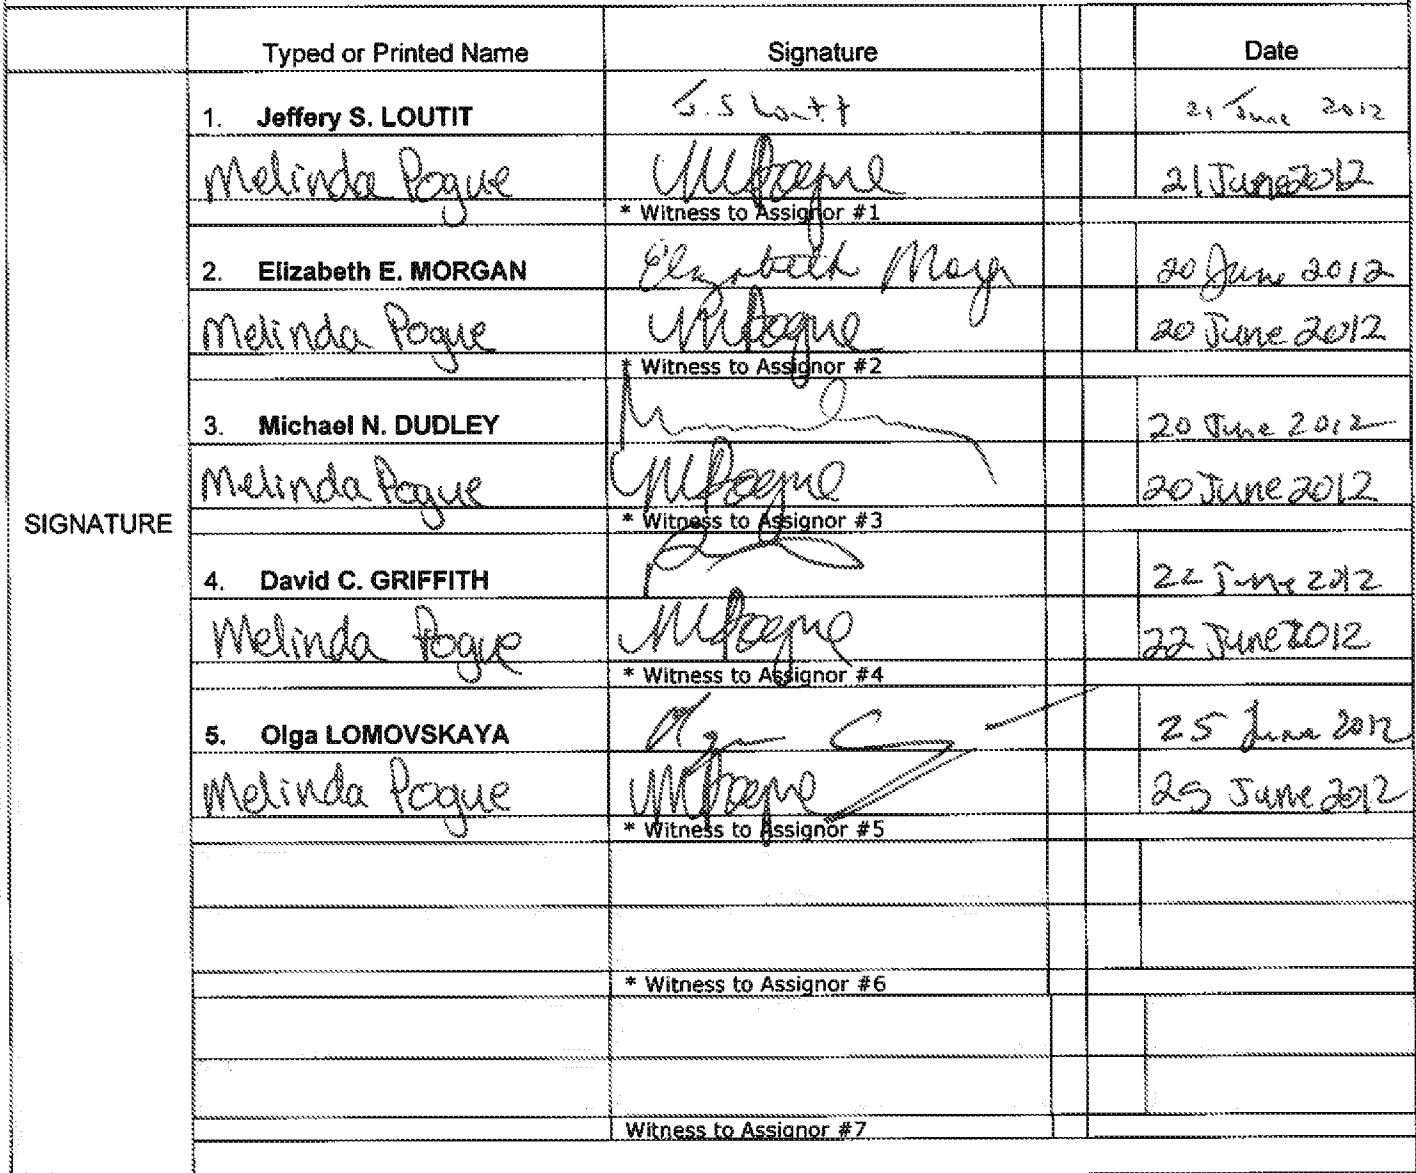 Typed or Printed Name Signature Date
1. Jeffery S. LOUTIT J. S Loutit 21 June 2012
Melinda Pogue MPogue 21 June 2012
* Witness to Assignor #1
2. Elizabeth E. MORGAN Elizabeth Morgan 20 June 2012
Melinda Pogue MPogue 20 June 2012
* Witness to Assignor #2
3. Michael N. DUDLEY 20 June 2012
Melinda Pogue MPogue 20 June 2012
SIGNATURE
* Witness to Assignor #3
4. David C. GRIFFITH 22 June 2012
Melinda Pogue MPogue 22 June 2012
* Witness to Assignor #4
5. Olga LOMOVSKAYA Olga 25 June 2012
Melinda Pogue MPogue 25 June 2012
* Witness to Assignor #5
* Witness to Assignor #6
Witness to Assignor #7